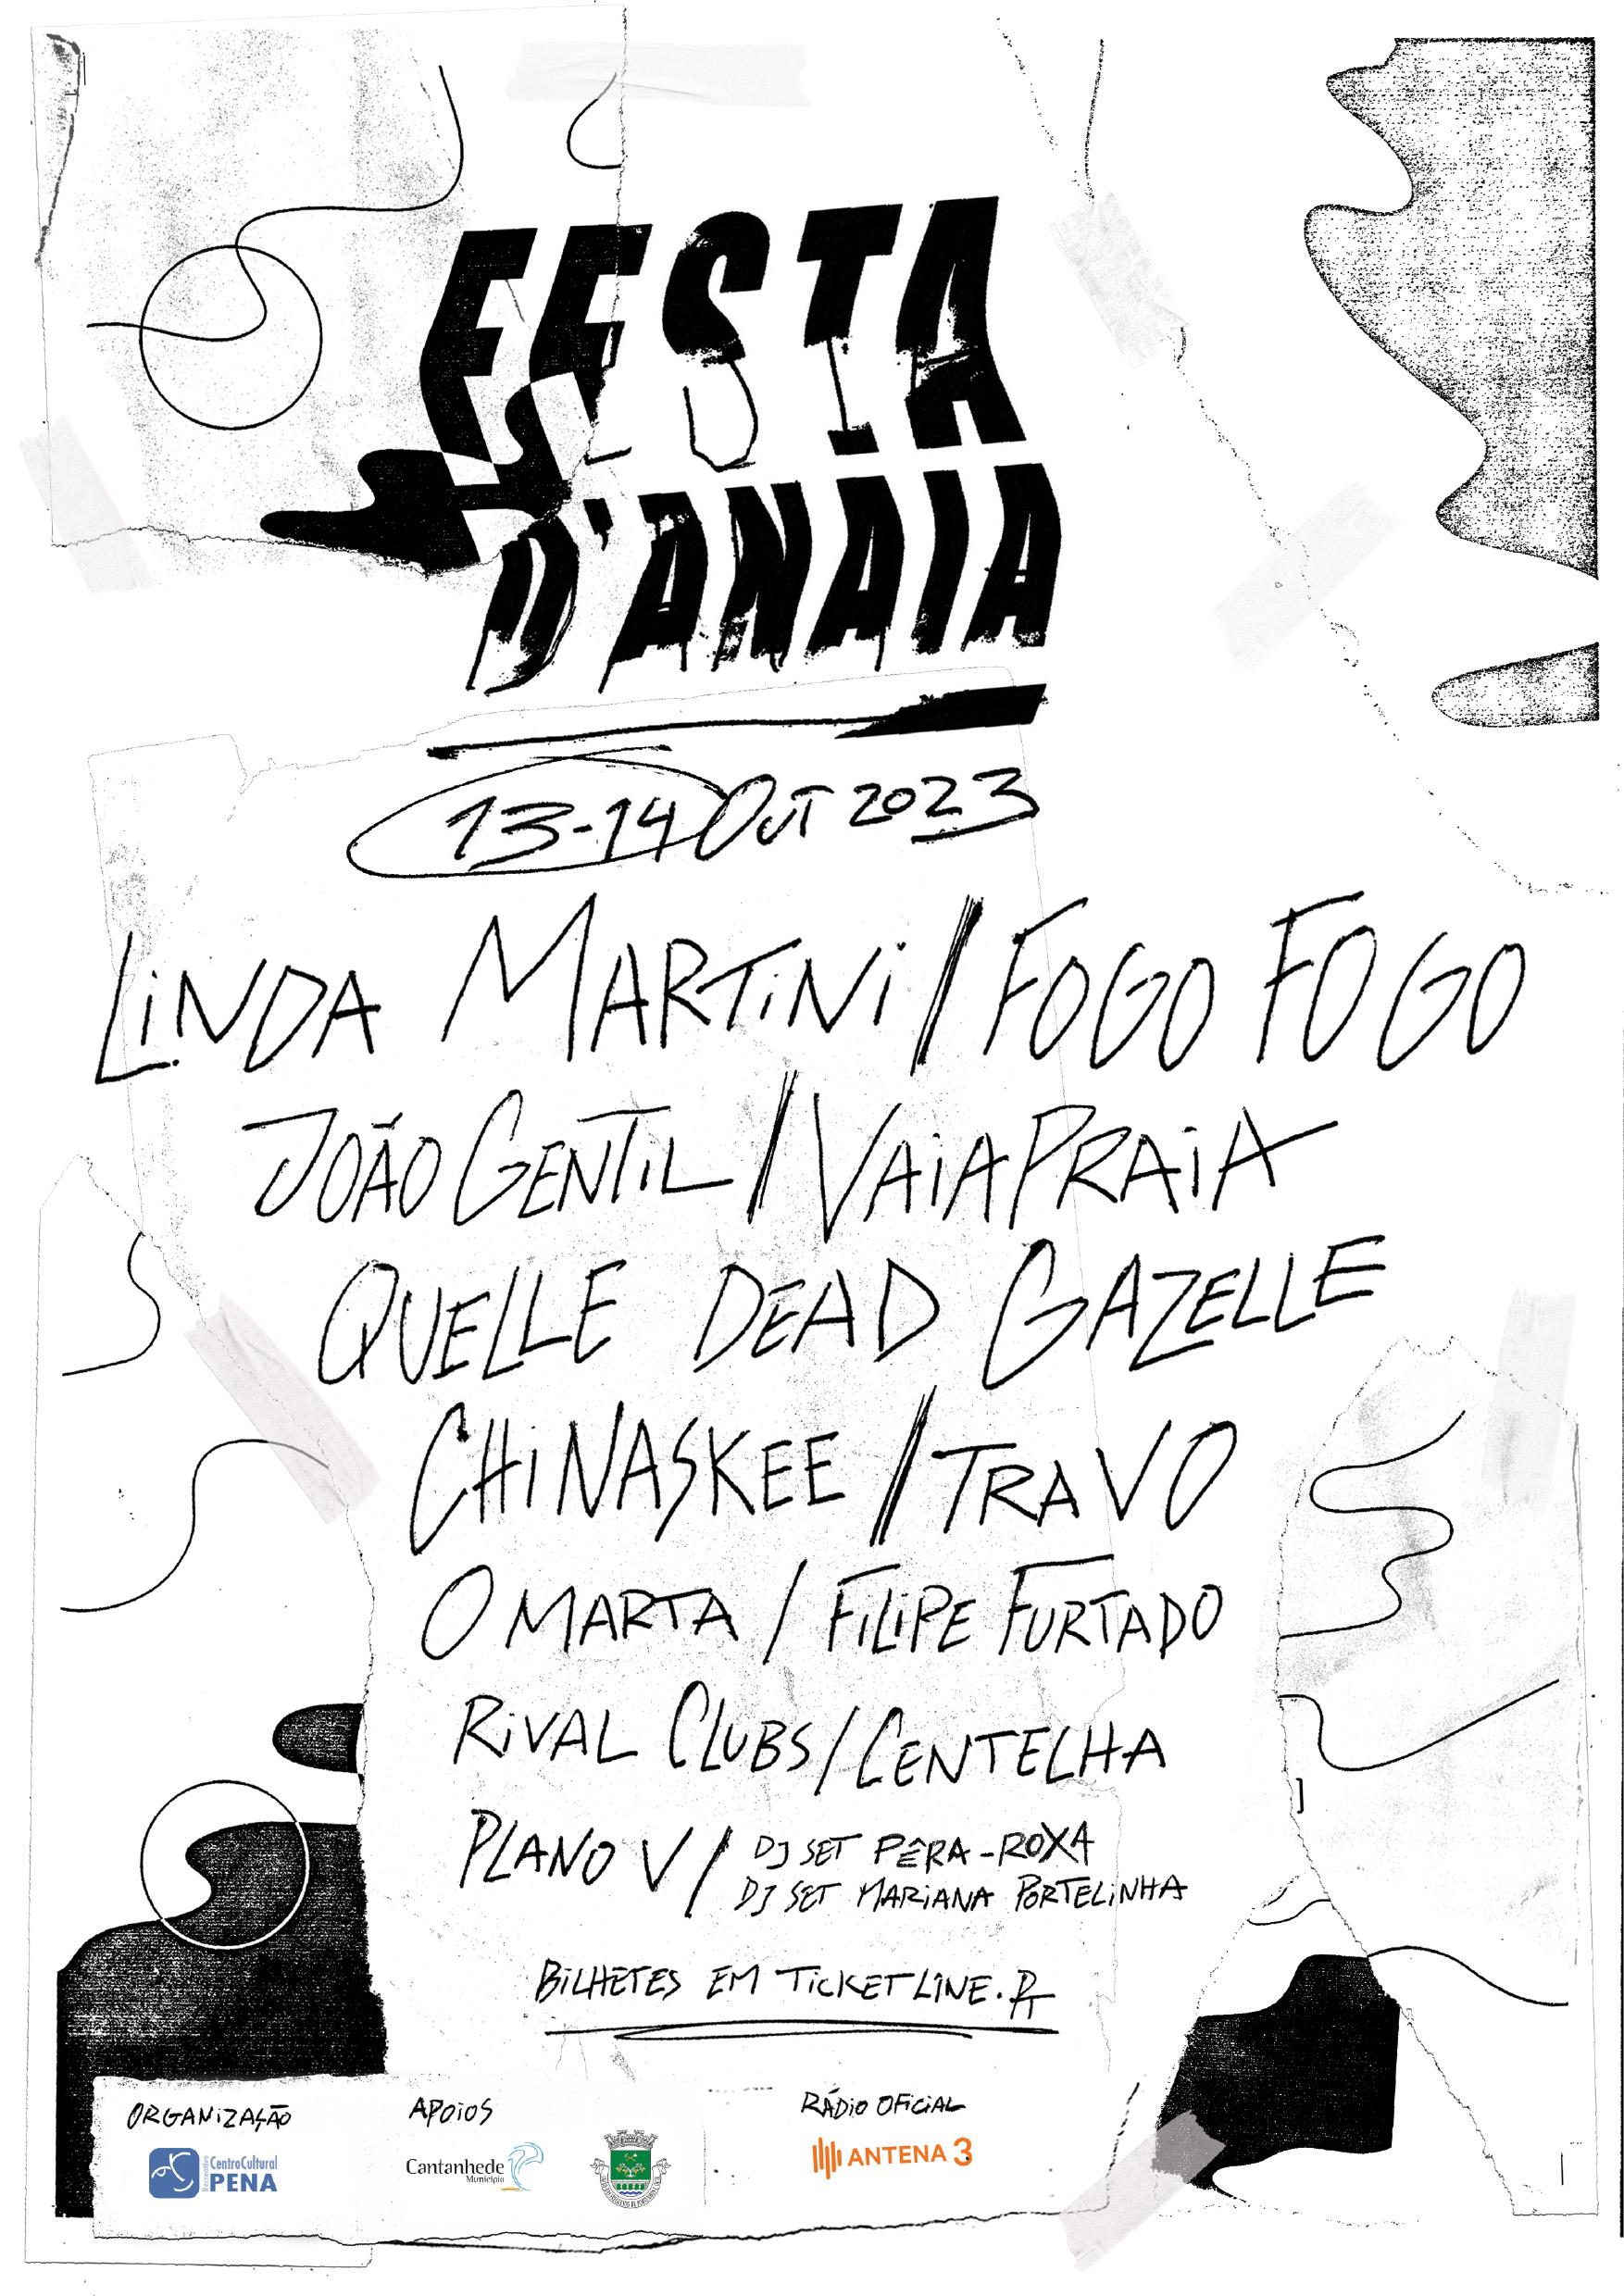 FESTA
D'ANAIA
13-14 OUT 2023
LINDA MARTINI / FOGO FOGO
JOÃO GENTIL / VAIAPRAIA
QUELLE DEAD GAZELLE
CHINASKEE / TRAVO
O MARTA / FILIPE FURTADO
RIVAL CLUBS / CENTELHA
PLANO V / DJ SET PÊRA-ROXA
DJ SET MARIANA PORTELINHA
BILHETES EM TICKETLINE.PT
ORGANIZAÇÃO
APOIOS
RÁDIO OFICIAL
Recreativo CentroCultural PENA
Cantanhede
Município
ANTENA 3